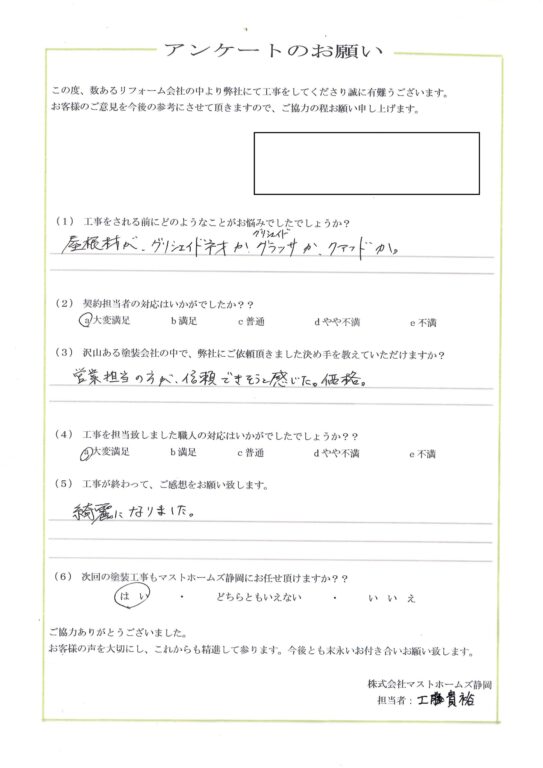 アンケートのお願い
この度、数あるリフォーム会社の中より弊社にて工事をしてくださり誠に有難うございます。
お客様のご意見を今後の参考にさせて頂きますので、ご協力の程お願い申し上げます。
(1) 工事をされる前にどのようなことがお悩みでしたでしょうか?
グリシェイド
屋根材が、グリシェイドネオか、グラッサか、クァッドか。
(2) 契約担当者の対応はいかがでしたか??
a大変満足 b満足 c普通 dやや不満 e不満
(3) 沢山ある塗装会社の中で、弊社にご依頼頂きました決め手を教えていただけますか?
営業担当の方が、信頼できそうと感じた。価格。
(4) 工事を担当致しました職人の対応はいかがでしたでしょうか??
a大変満足 b満足 c普通 dやや不満 e不満
(5) 工事が終わって、ご感想をお願い致します。
綺麗になりました。
(6) 次回の塗装工事もマストホームズ静岡にお任せ頂けますか??
はい ・ どちらともいえない ・ いいえ
ご協力ありがとうございました。
お客様の声を大切にし、これからも精進して参ります。今後とも末永いお付き合いお願い致します。
株式会社マストホームズ静岡
担当者:工藤貴裕